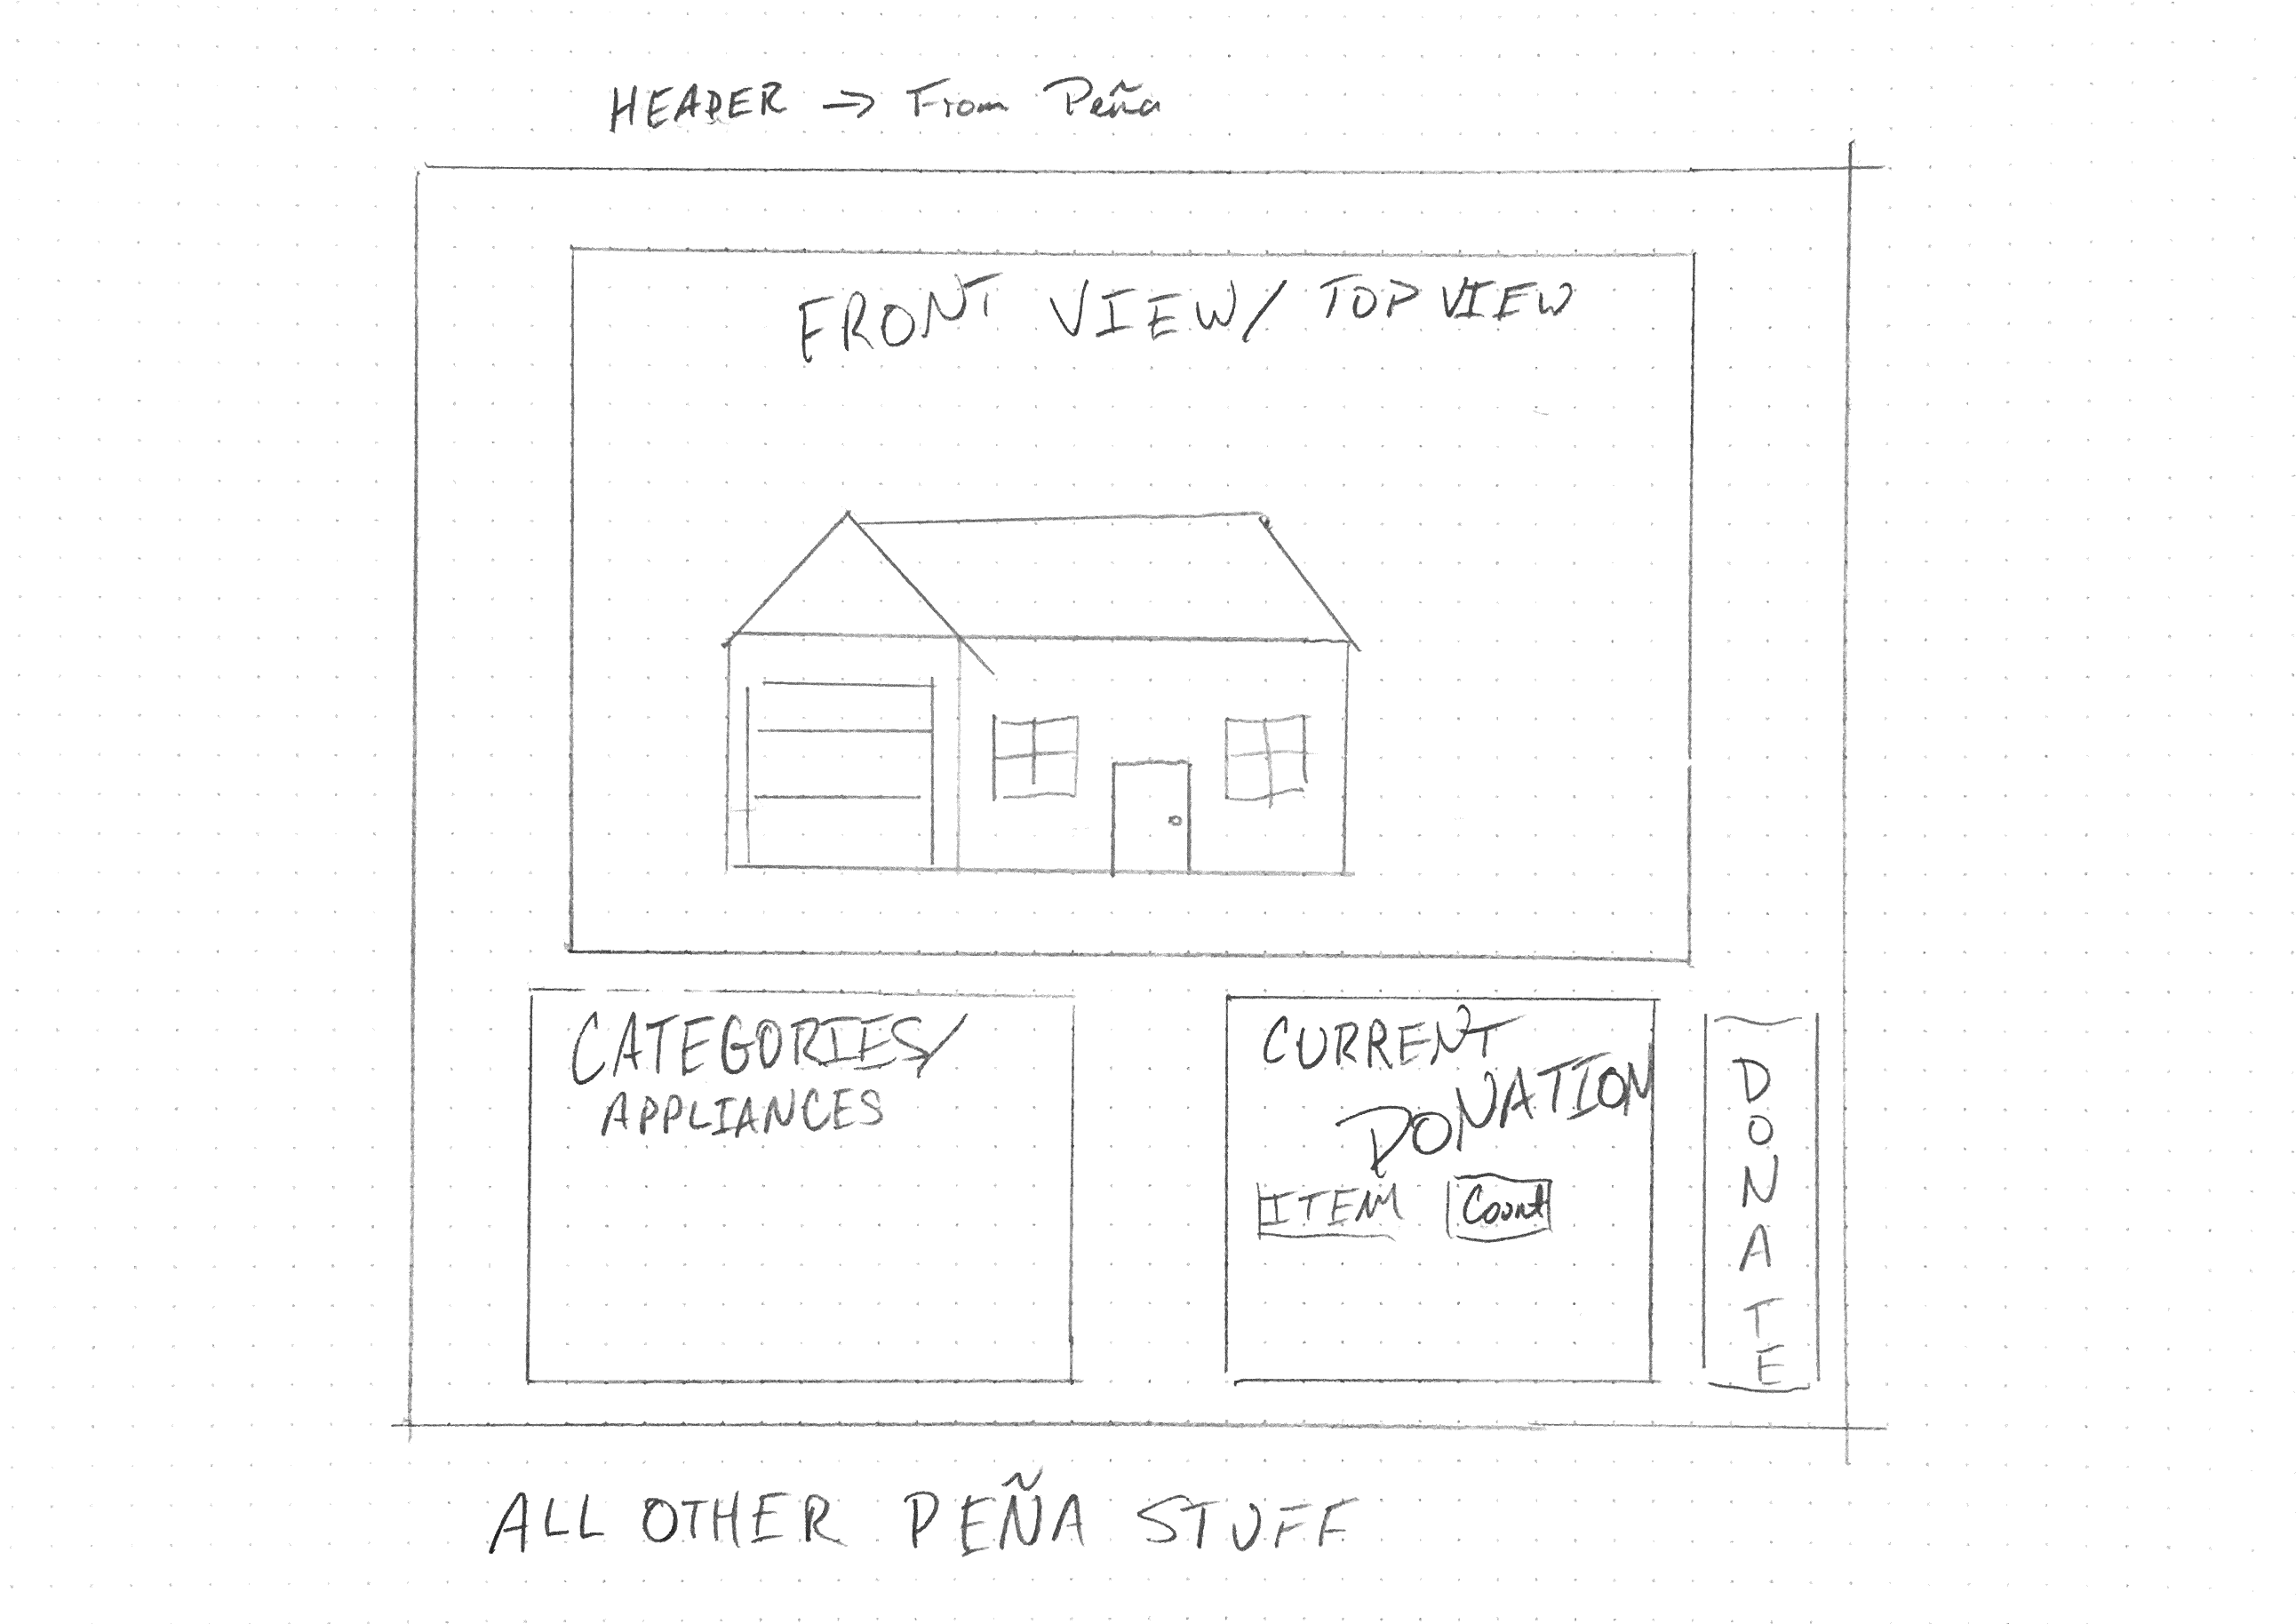 HEADER → From Peña
FRONT VIEW/ TOP VIEW
CATEGORIES/
APPLIANCES
CURRENT
DONATION
ITEM Count
DONATE
ALL OTHER PEÑA STUFF